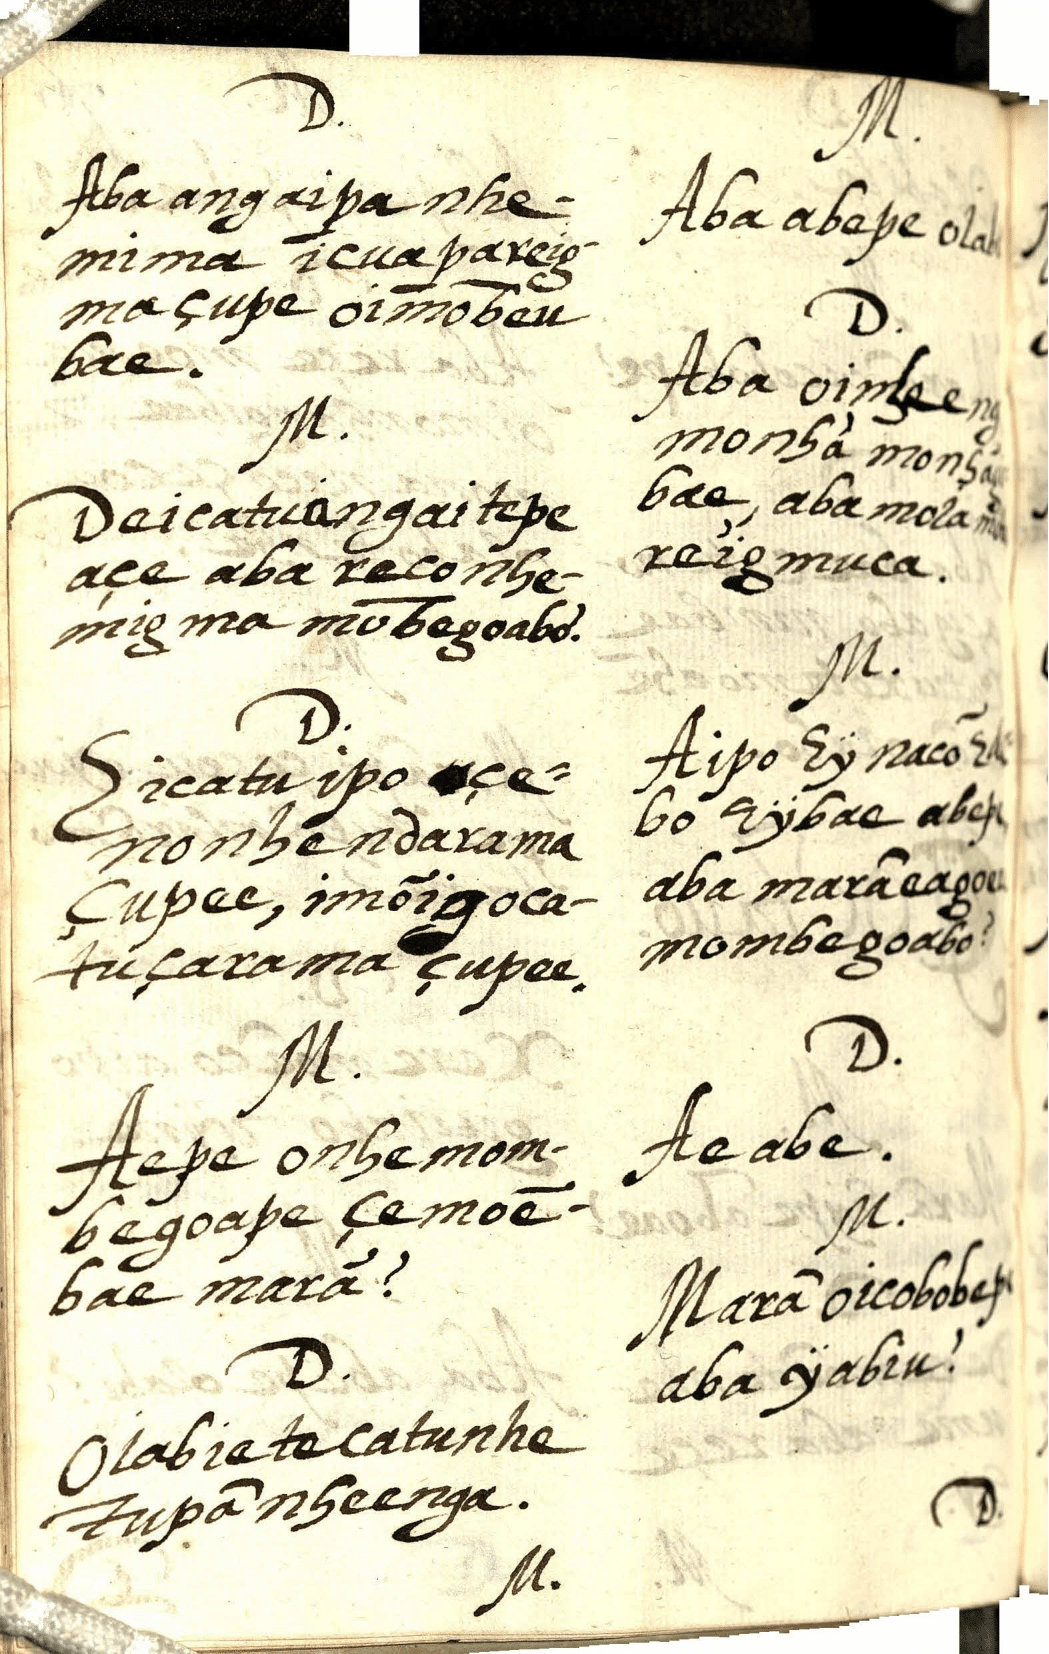 D.
Aba angaipa nhe-
mima ĩcuapareig-
ma çupe oim̄ob̄eu
bae.
M.
Deicatuangaitepe
açe aba reconhe-
mig ma mo̅begoabo?
D.
Eicatu ipo açe=
nonhendarama
Çupee, imõigoca-
tuçarama çupee.
M.
Aepe onhemom-
begoape çemoē-
bae marã?
D.
Olabietecatunhe
tupã nheenga.
M.
M.
Aba abepe
D.
Aba
monhà
bae, aba
reïgmuca.
M.
Aipo Eÿ nacõ
bo Eÿbae
aba marãeagoe
mombegoabo?
D.
Ae abe.
M.
Marã
aba ÿabiu?
D.